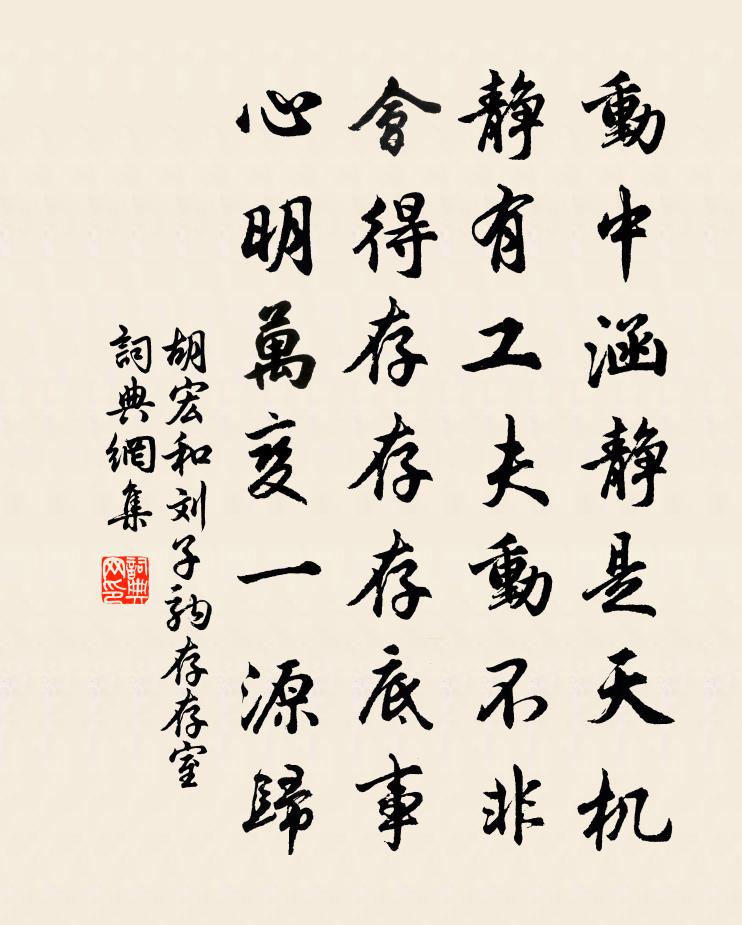 動中涵靜是天机
靜有工夫動不非
會得存存存底事
心明萬变一源歸
胡宏和刘子駒存存室
詞典網集
詞典网印